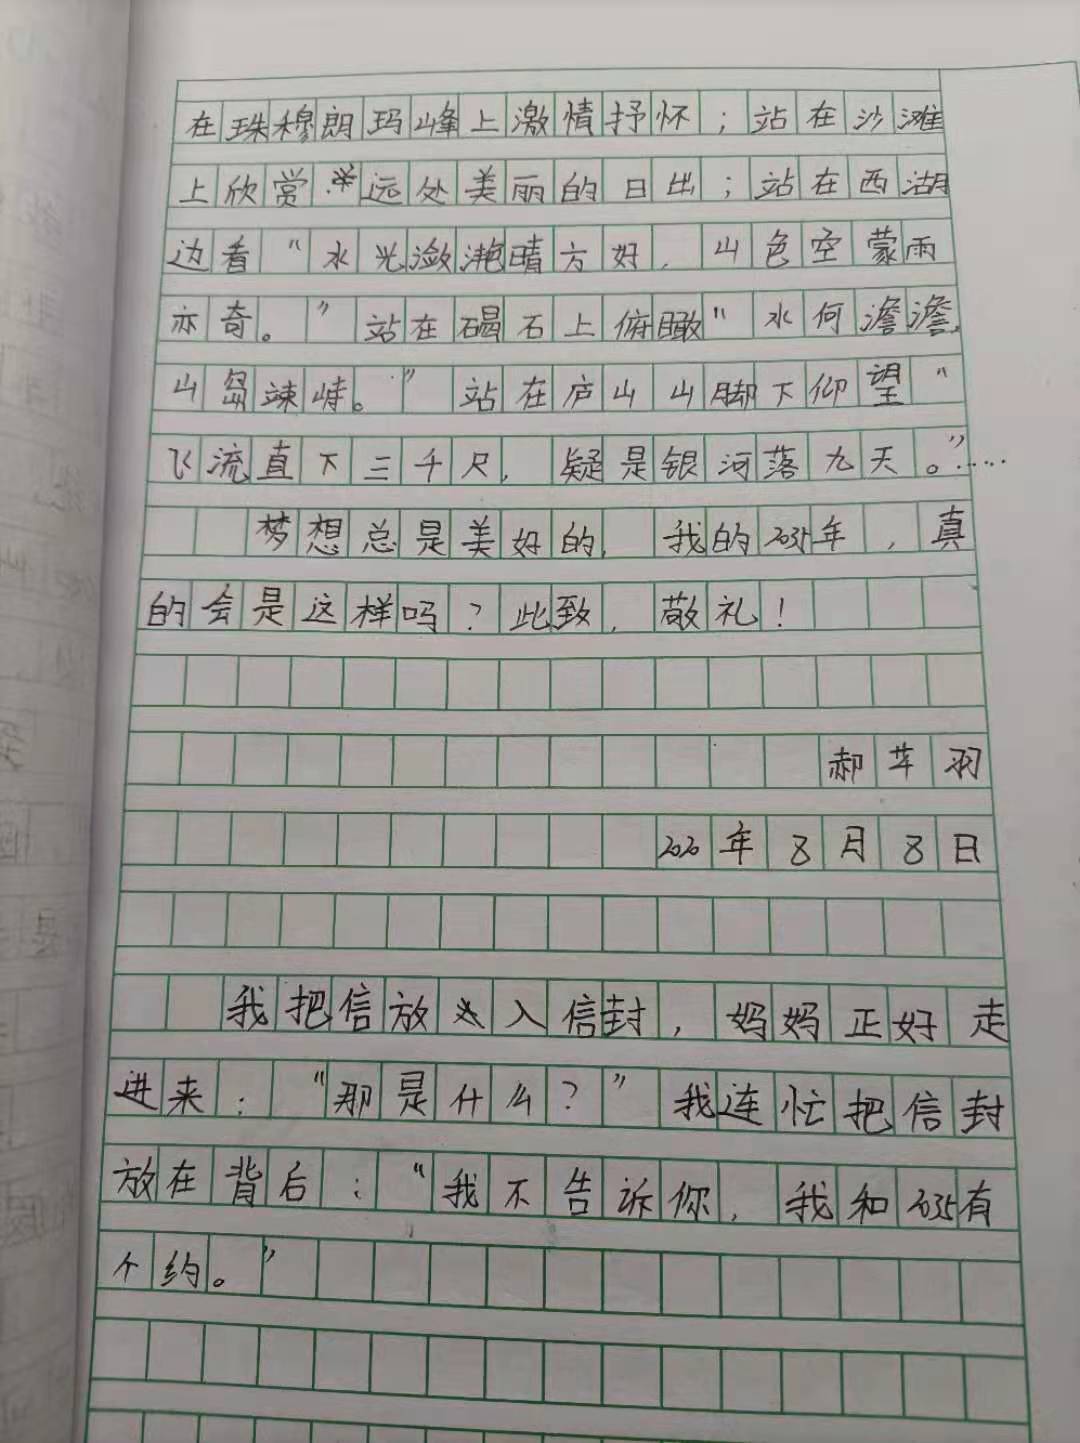 在珠穆朗玛峰上激情抒怀；站在沙滩
上欣赏远处美丽的日出；站在西湖
边看“水光潋滟晴方好，山色空蒙雨
亦奇。”站在碣石上俯瞰“水何澹澹，
山岛竦峙。”站在庐山山脚下仰望“
飞流直下三千尺，疑是银河落九天。”……
梦想总是美好的，我的2035年，真
的会是这样吗？此致，敬礼！
郝苹羽
2020年8月8日
我把信放入信封，妈妈正好走
进来：“那是什么？”我连忙把信封
放在背后：“我不告诉你，我和2035有
个约。”